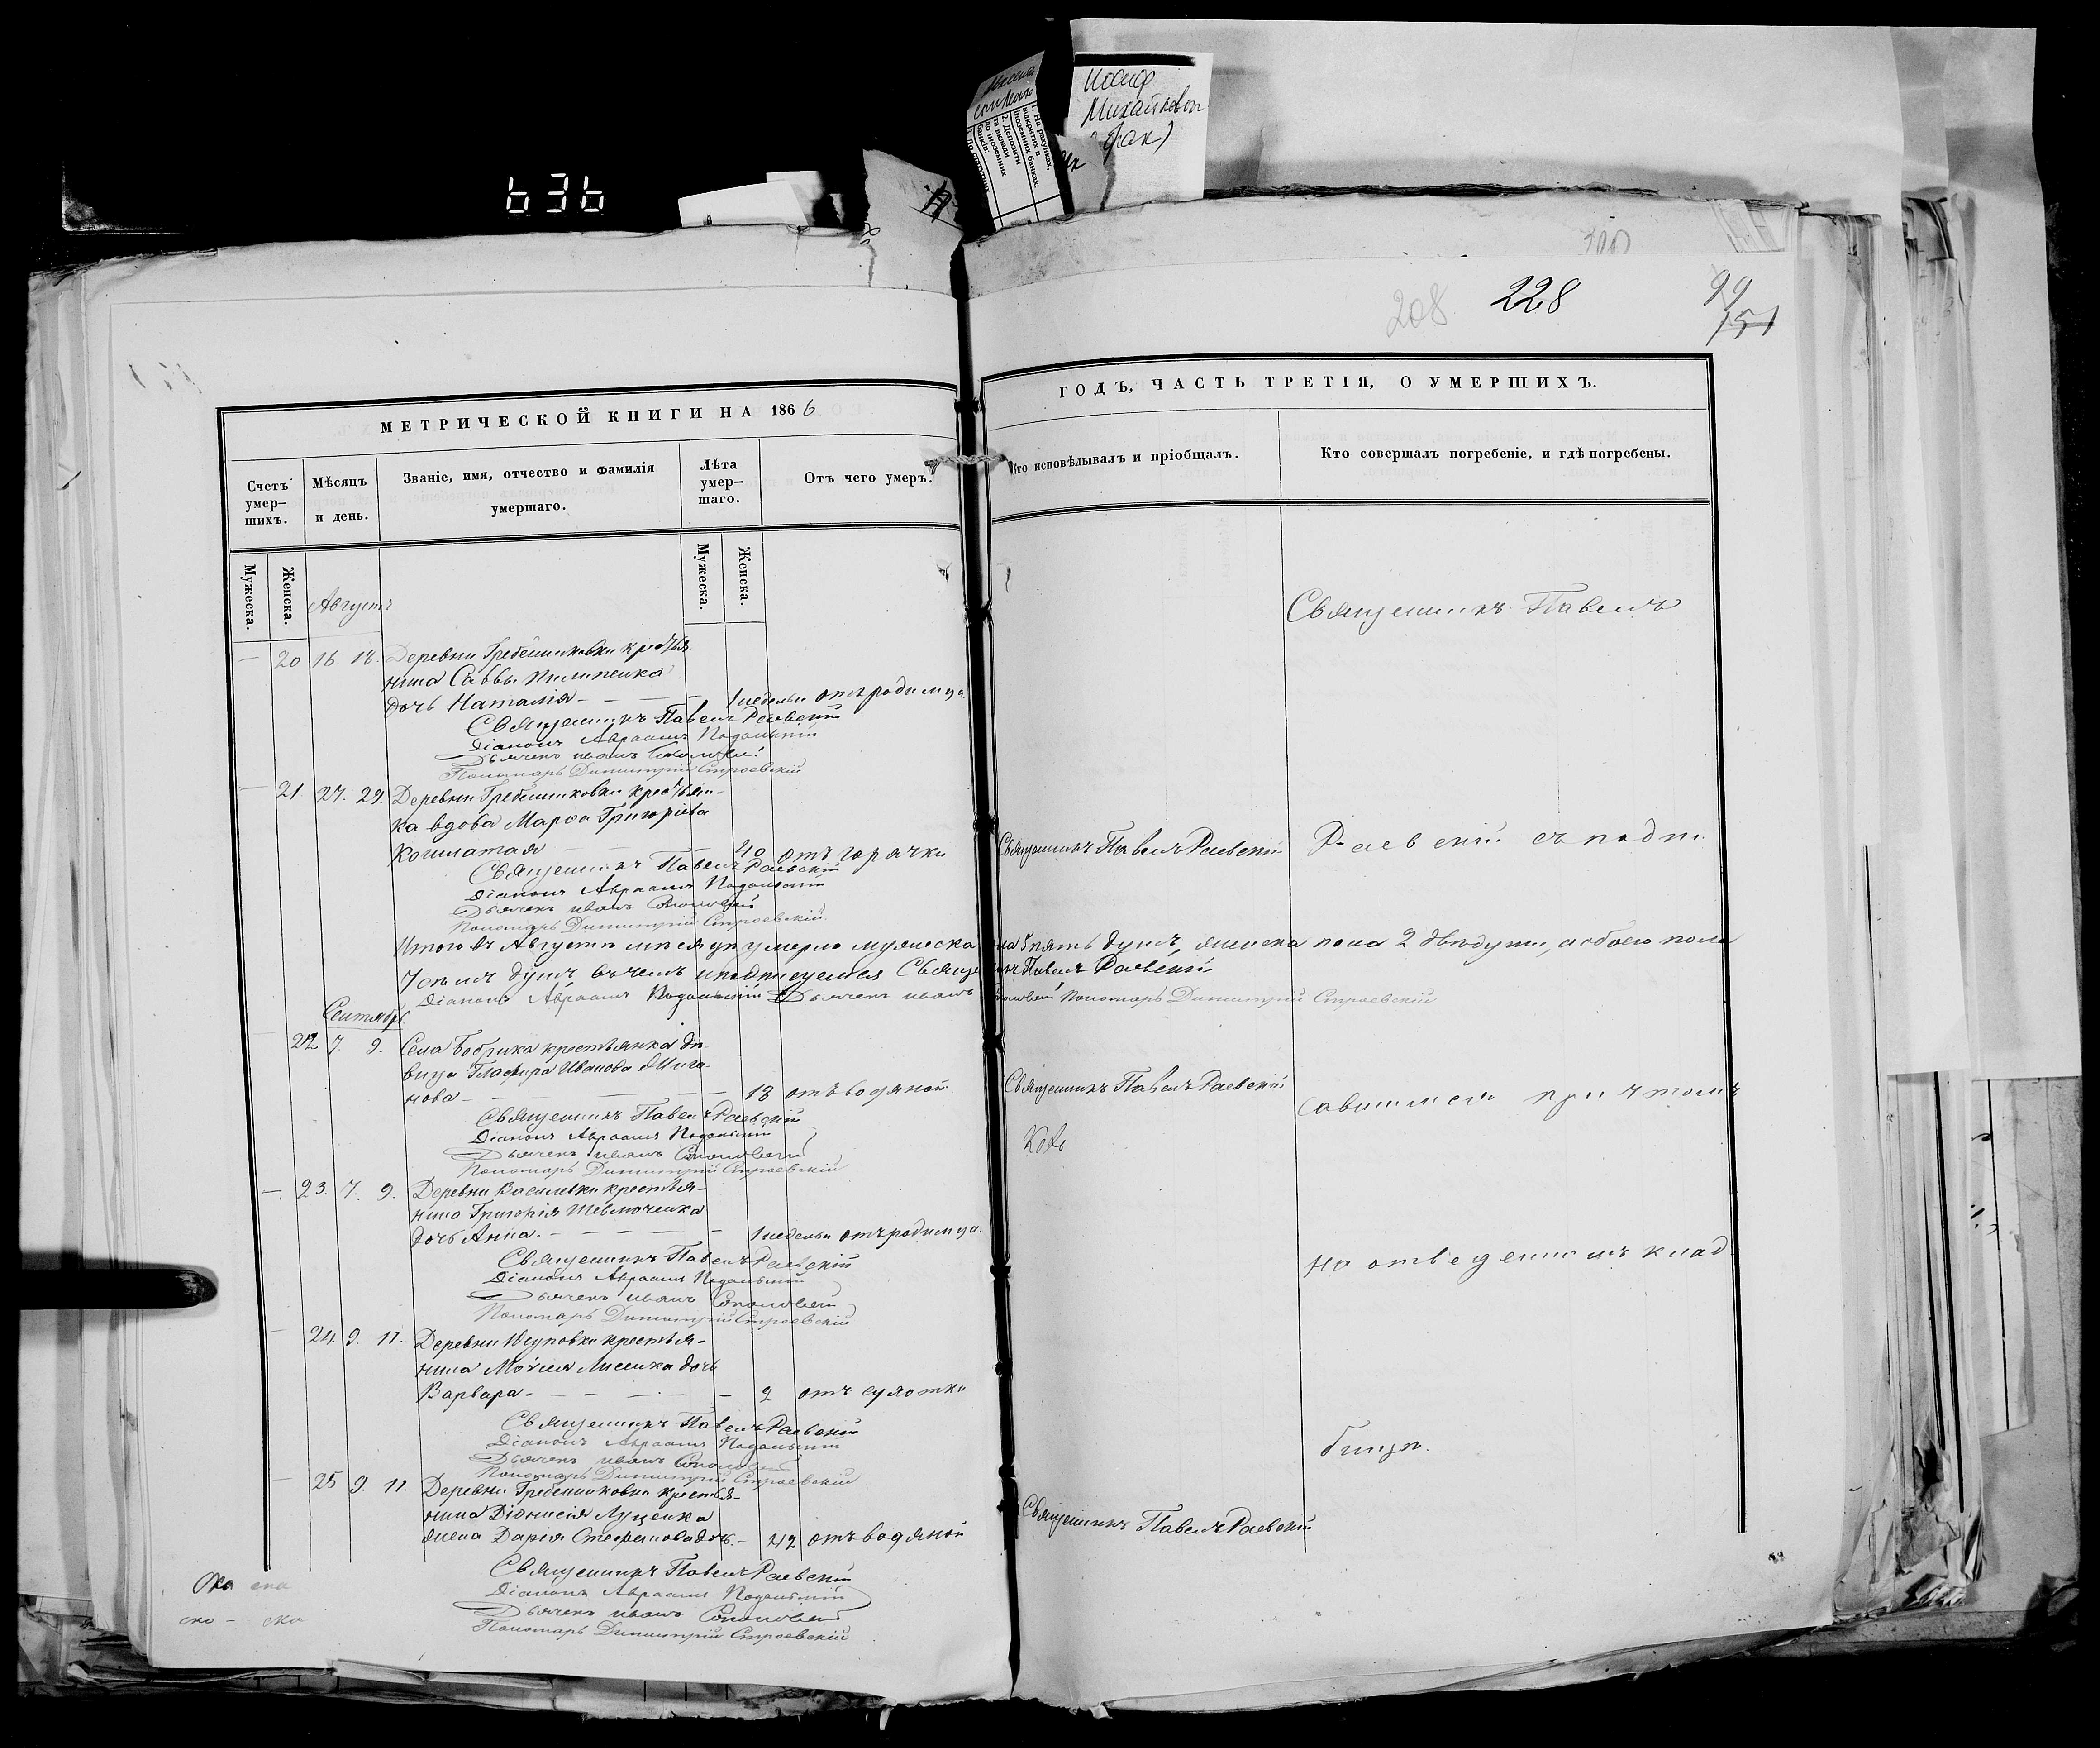 636
Иосиф
Михайлов
208 228 99
151
МЕТРИЧЕСКОЙ КНИГИ НА 1866
ГОДЪ, ЧАСТЬ ТРЕТІЯ, О УМЕРШИХЪ.
Счетъ умер–шихъ.
Мѣсяцъ и день.
Званіе, имя, отчество и фамилія умершаго.
Лѣта умер–шаго.
Отъ чего умеръ.
Кто исповѣдывалъ и пріобщалъ.
Кто совершалъ погребеніе, и гдѣ погребены.
Мужеска. Женска. Мужеска. Женска.
Августъ
— 20 16. 18. Деревни Гребенниковки крестья
нина Саввы Пилипенка
дочь Наталія — — — 1 недели отъ родимца.
Священникъ Павелъ Раевскій
Діаконъ Авраамъ Подольскій
Дьячекъ Иванъ
Пономарь Димитрій Строевскій
— 21 27. 29. Деревни Гребенниковки крестьян–
ка вдова Марѳа Григоріева
Кошлатая — — — 40 отъ горячки
Священникъ Павелъ Раевскій
Священникъ Павелъ Раевскій
Діаконъ Авраамъ Подольскій
Дьячекъ Иванъ
Пономарь Димитрій Строевскій
Итого въ Августѣ мѣсяцѣ умерло мужеска пола 5 пять душъ, женска пола 2 двѣ души, а обоего пола
7 семь душъ въ чемъ и подписуемся Священникъ Павелъ Раевскій
Діаконъ Авраамъ Подольскій Дьячекъ Иванъ Пономарь Димитрій Строевскій
Сентябрь
22 7. 9. Села Бобрика крестьянка дѣ
вица Глафира Иванова
нова — — — 18 отъ водяной
Священникъ Павелъ Раевскій
Священникъ Павелъ Раевскій
Діаконъ Авраамъ Подольскій
Дьячекъ Иванъ
Пономарь Димитрій Строевскій
— 23. 7. 9. Деревни Василевки крестья–
нина Григорія Шевмоченка
дочь Анна. — — — 1 недели отъ родимца.
Священникъ Павелъ Раевскій
Діаконъ Авраамъ Подольскій
Дьячекъ Иванъ
Пономарь Димитрій Строевскій
— 24. 9. 11. Деревни крестья–
нина Моѵсея Лисенка дочь
Варвара — — — 2 отъ сухотки
Священникъ Павелъ Раевскій
Діаконъ Авраамъ Подольскій
Дьячекъ Иванъ
Пономарь Димитрій Строевскій
— 25 9. 11. Деревни Гребенниковки крестья–
нина Діонисія Луценка
жена Дарія Стефанова дочь. — 42 отъ водяной
Священникъ Павелъ Раевскій
Священникъ Павелъ Раевскій
Діаконъ Авраамъ Подольскій
Дьячекъ Иванъ
Пономарь Димитрій Строевскій
Священникъ Павелъ
Раевскій съ подпи
савшимся причтомъ
на отведенномъ клад
бищѣ.